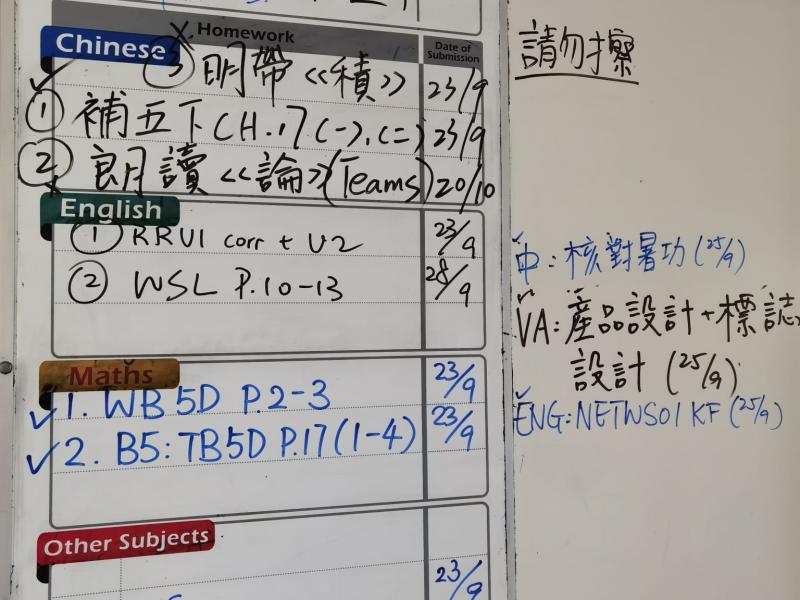 Homework
Date of Submission
Chinese
③ 明帶《積》 23/9
① 補五下CH.17(一),(二) 23/9
② 朗讀《論》(Teams) 20/10
English
① RRU1 corr + U2 23/9
② WSL P.10-13 28/9
Maths
1. WB 5D P.2-3 23/9
2. B5: TB5D P.17(1-4) 23/9
Other Subjects
23/9
請勿擦
中: 核對暑功 (25/9)
VA: 產品設計 + 標誌
設計 (25/9)
ENG: NETWS01 KF (25/9)